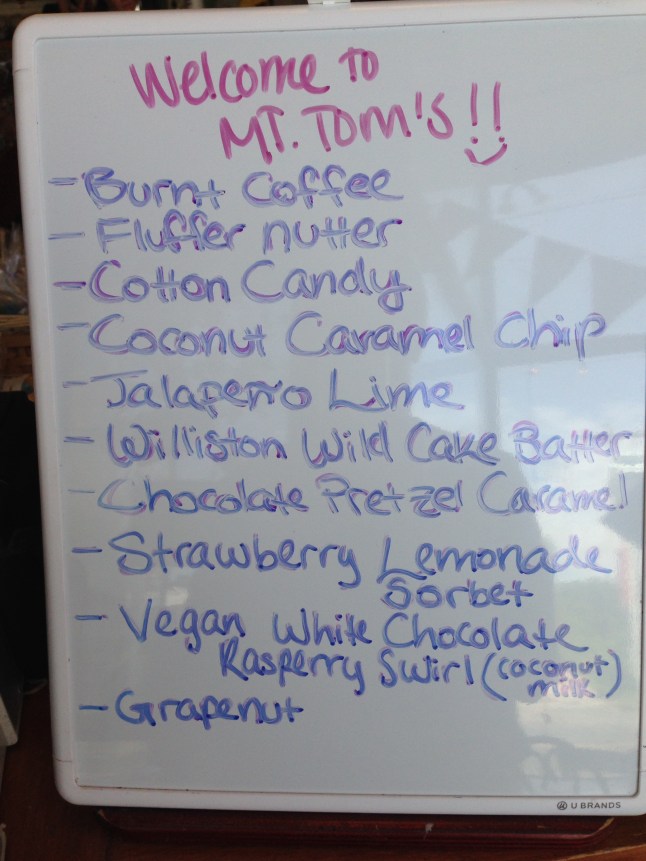 Welcome to
MT. TOM'S!!
- Burnt Coffee
- Fluffer nutter
- Cotton Candy
- Coconut Caramel Chip
- Jalapeño Lime
- Williston Wild Cake Batter
- Chocolate Pretzel Caramel
- Strawberry Lemonade
Sorbet
- Vegan White Chocolate
Rasperry Swirl (coconut
milk)
- Grapenut
U BRANDS